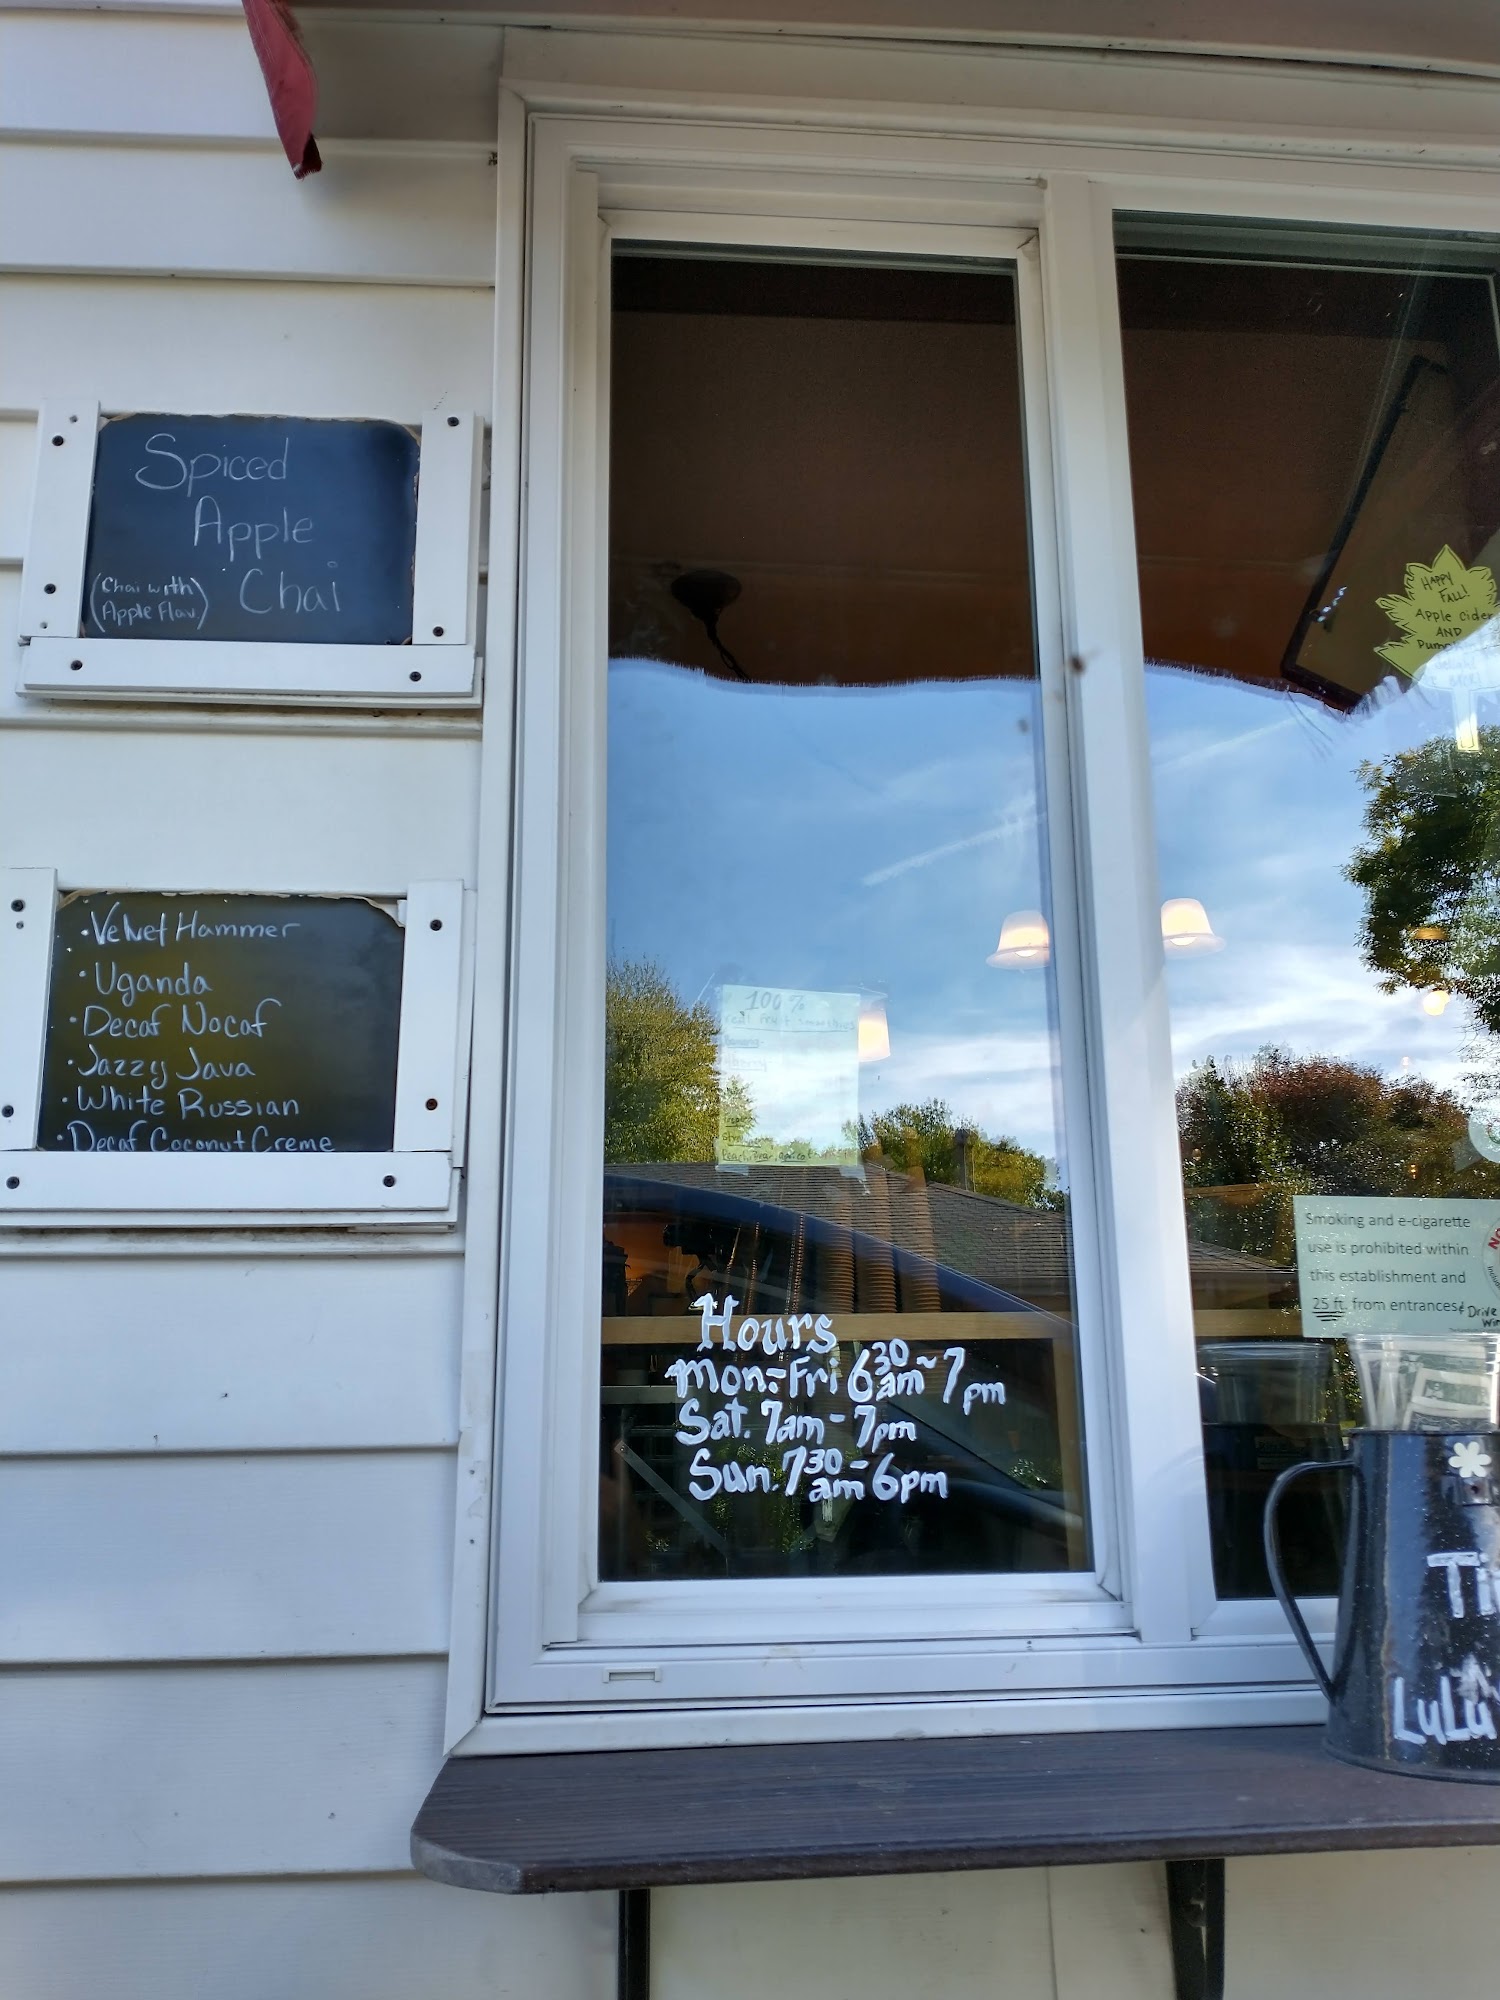 Spiced
Apple
Chai
(Chai with
Apple Flav)
• Velvet Hammer
• Uganda
• Decaf Nocaf
• Jazzy Java
• White Russian
• Decaf Coconut Creme
100%
real fruit smoothies
Banana-
Hours
Mon.-Fri 6:30am - 7pm
Sat. 7am - 7pm
Sun. 7:30am - 6pm
HAPPY
FALL!
Apple Cider
AND
Smoking and e-cigarette
use is prohibited within
this establishment and
25 ft. from entrances & Drive
LuLu